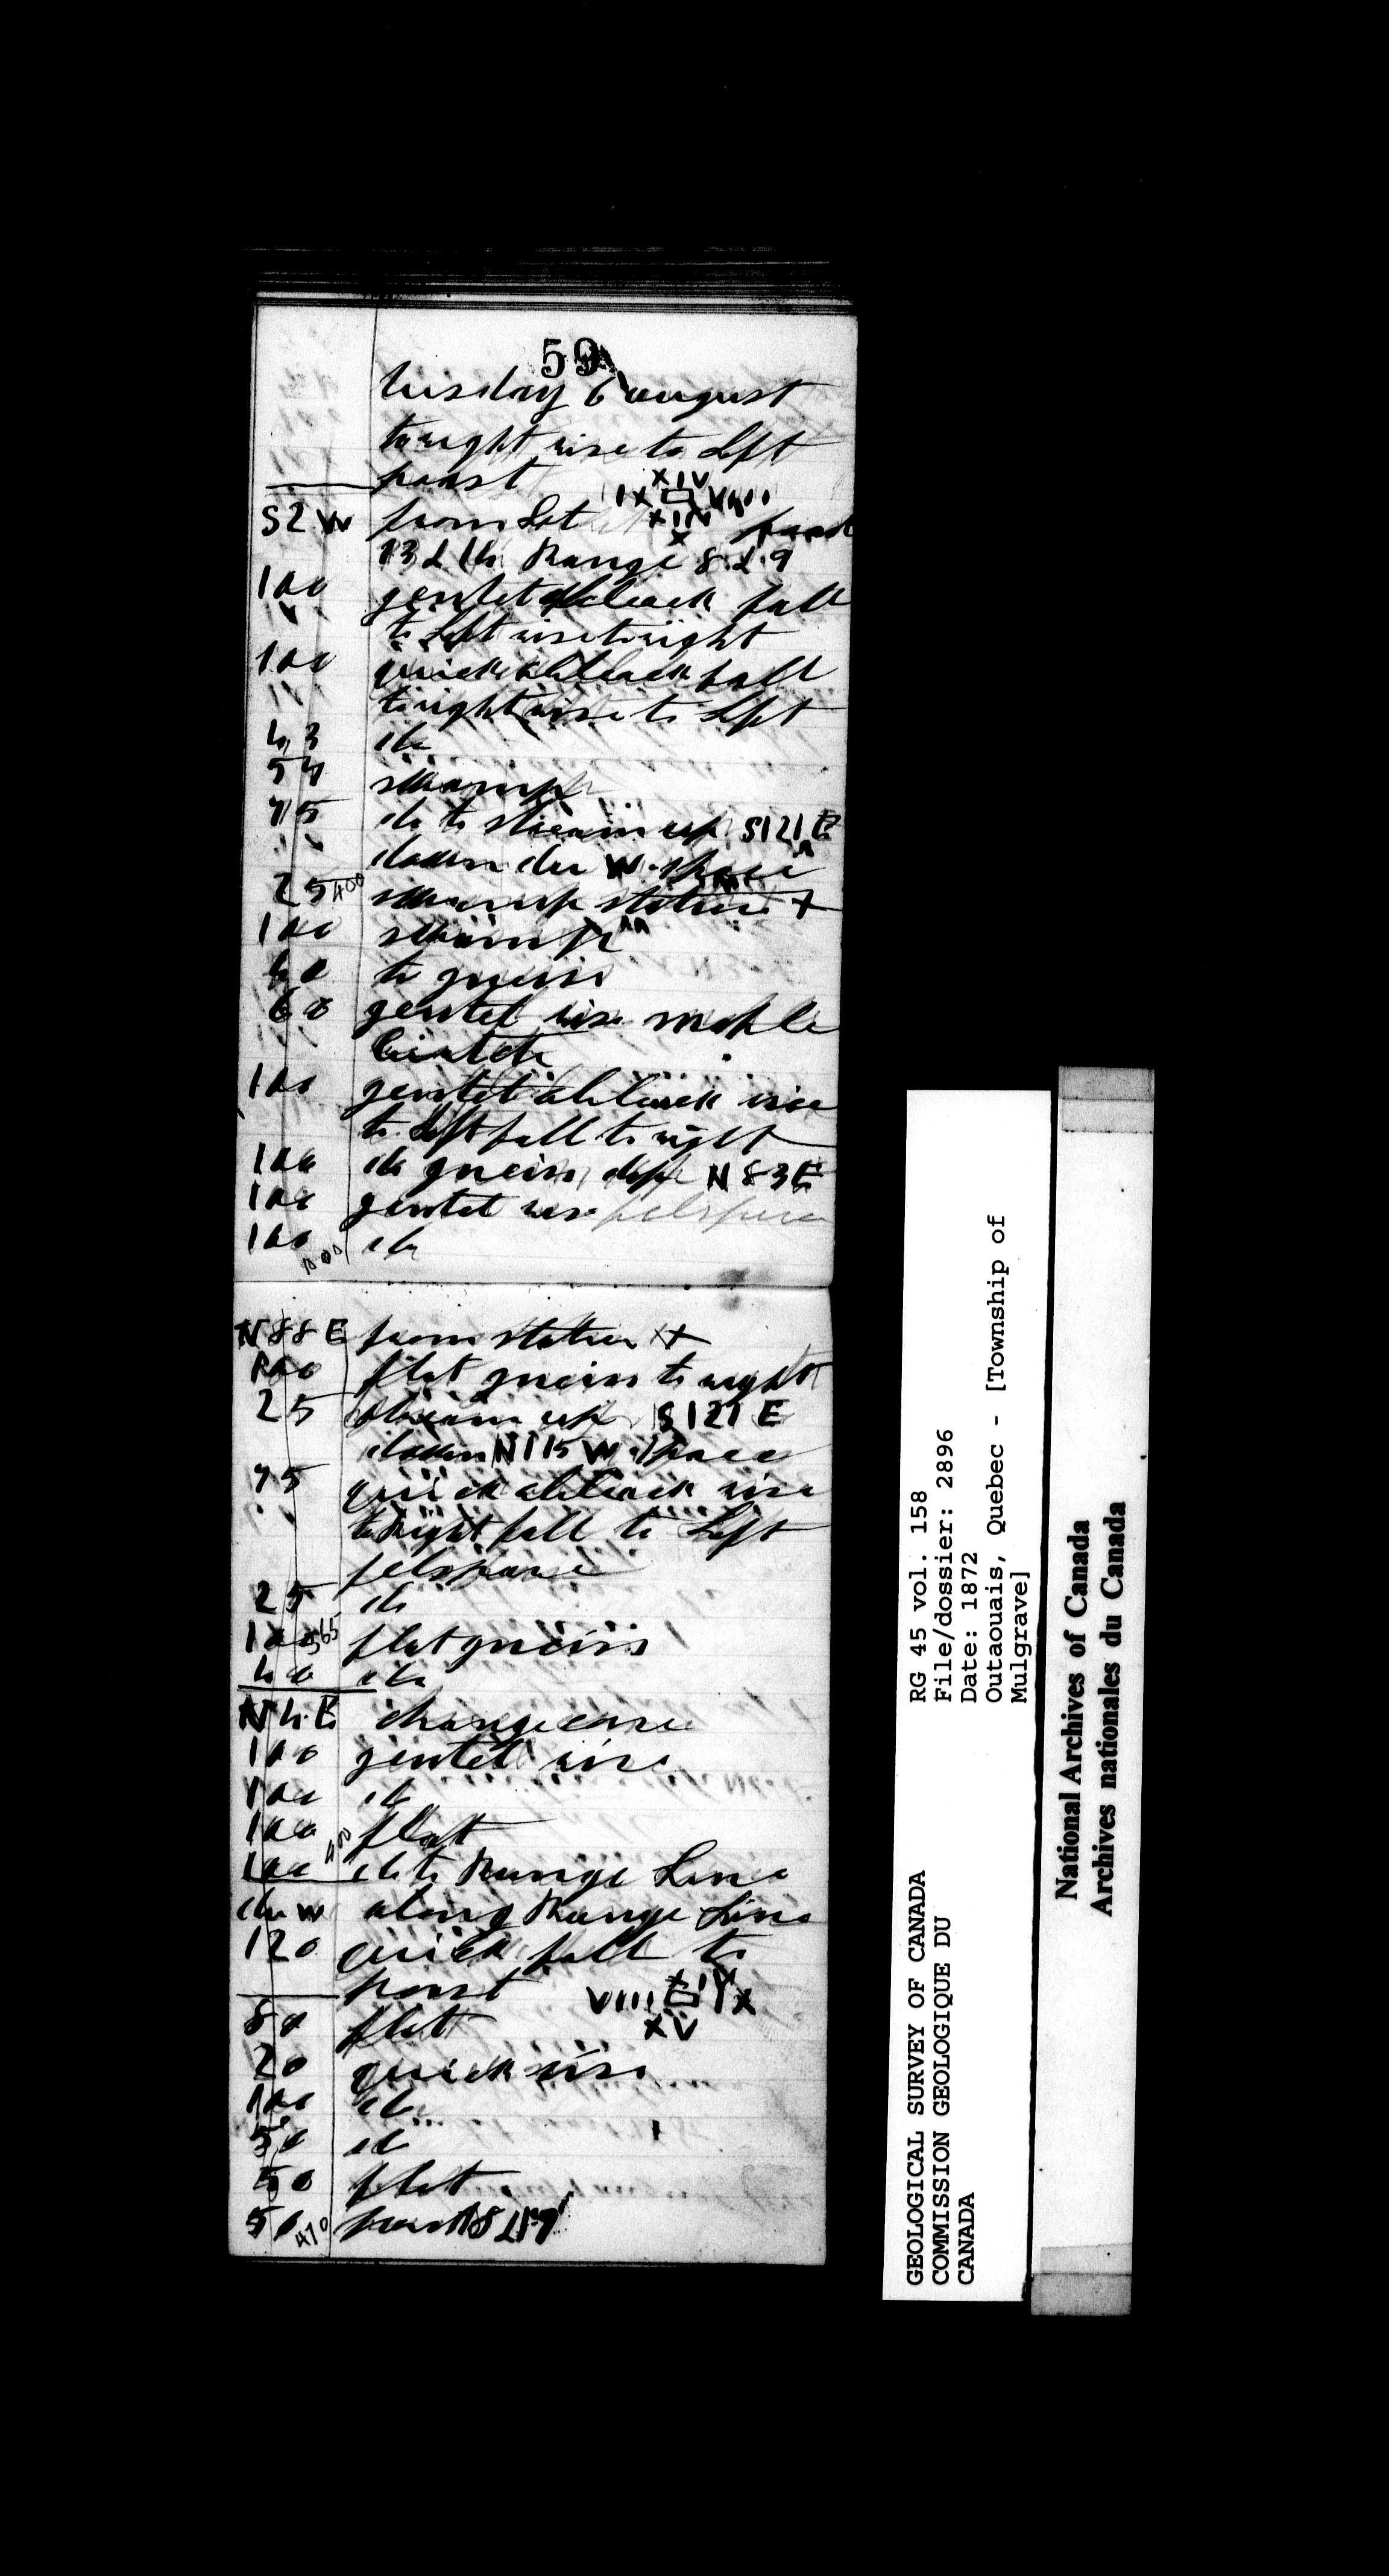 59
tusday 6 august
to right rise to Left
poast
XIV
IX VIII
XIV
X
S 2 W from Lot
13 & 14 Range 8 & 9
100 gentel ableack fall
to Left rise to right
100 quick ableack fall
to right rise to Left
43 do
54 swamp
75 do to stream up S 121 E
down du W space
25 400 swamp station +
100 swamp
40 to gneiss
60 gentel rise maple
100 gentel ableack rise
to Left fall to right
100 do gneiss dip N 83 E
100 gentel rise felspare
100 1000 do
N 88 E from station +
100 flat gneiss to right
25 stream up S 121 E
down N 115 W space
75 quick ableack rise
to Right fall to Left
felspare
25 do
100 565 flat gneiss
40 do
N 4 E change corse
100 gentel rise
100 do
100 400 flat
100 do to Range Line
du W along Range Line
120 quick fall to
poast
XIV
VIII IX
XV
80 flat
20 quick rise
100 do
50 do
50 flat
50 470 poast
GEOLOGICAL SURVEY OF CANADA
COMMISSION GEOLOGIQUE DU
CANADA
RG 45 vol. 158
File/dossier: 2896
Date: 1872
Outaouais, Quebec - [Township of
Mulgrave]
National Archives of Canada
Archives nationales du Canada